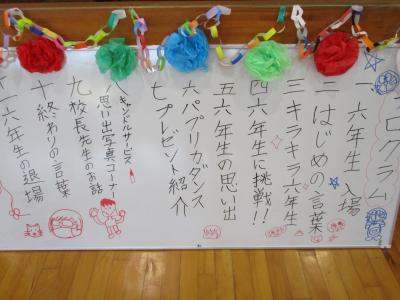 プログラム
一 六年生 入場
二 はじめの言葉
三 キラキラ六年生
四 六年生に挑戦!!
五 六年生の思い出
六 パプリカダンス
七 プレゼント紹介
八 キャンドルサービス
思い出写真コーナー
九 校長先生のお話
十 終わりの言葉
六年生の退場